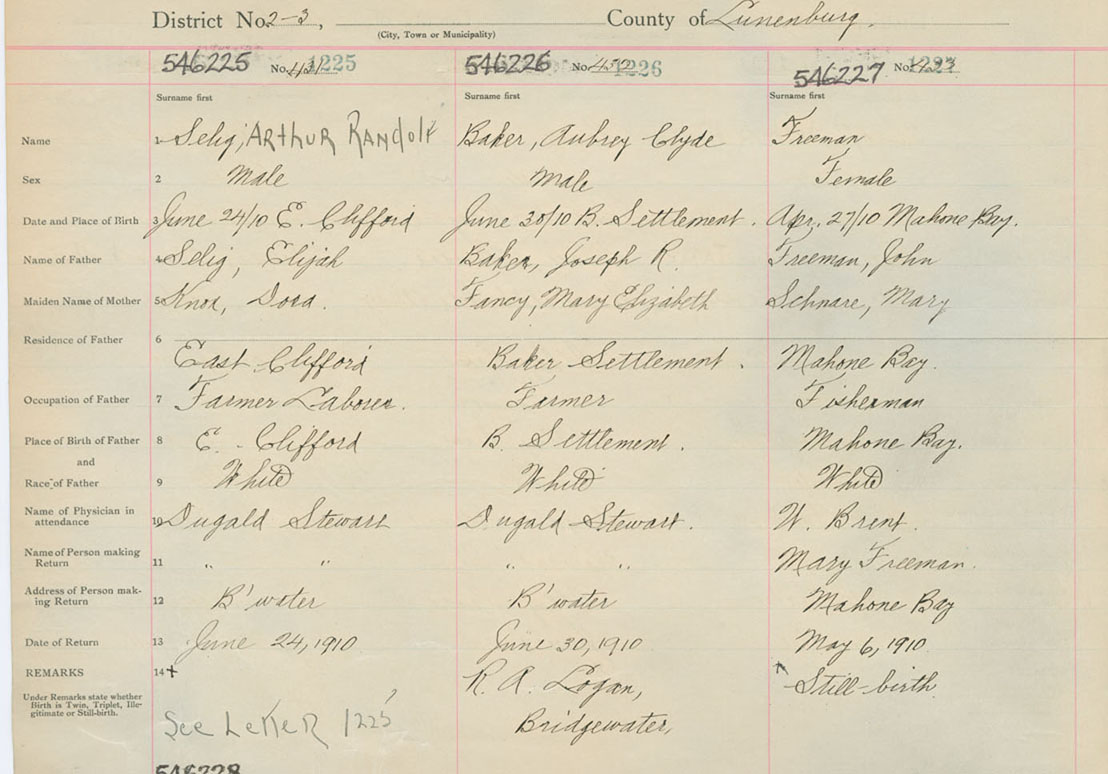 District No. 2-3, County of Lunenburg.
(City, Town or Municipality)
546225 No. 1225 546226 No. 1226 546227 No.
Surname first Surname first Surname first
Name 1 Selig, ARTHUR RANdOlF Baker, Aubrey Clyde Freeman
Sex 2 Male Male Female
Date and Place of Birth 3 June 24/10 E. Clifford June 30/10 B. Settlement. Apr. 27/10 Mahone Bay.
Name of Father 4 Selig, Elijah Baker, Joseph R. Freeman, John
Maiden Name of Mother 5 Knox, Dora. Fancy, Mary Elizabeth Schnare, Mary
Residence of Father 6
East Clifford Baker Settlement. Mahone Bay.
Occupation of Father 7 Farmer Laborer. Farmer Fisherman
Place of Birth of Father 8 E. Clifford B. Settlement. Mahone Bay.
and
Race of Father 9 White White White
Name of Physician in
attendance 10 Dugald Stewart Dugald Stewart. W. Brent.
Name of Person making
Return 11 " " " " Mary Freeman.
Address of Person mak-
ing Return 12 B'water B'water Mahone Bay
Date of Return 13 June 24, 1910 June 30, 1910 May 6, 1910
REMARKS 14 + R. A. Logan, Still-birth
Under Remarks state whether
Birth is Twin, Triplet, Ille-
gitimate or Still-birth.
See Letter 1225 Bridgewater,
546228